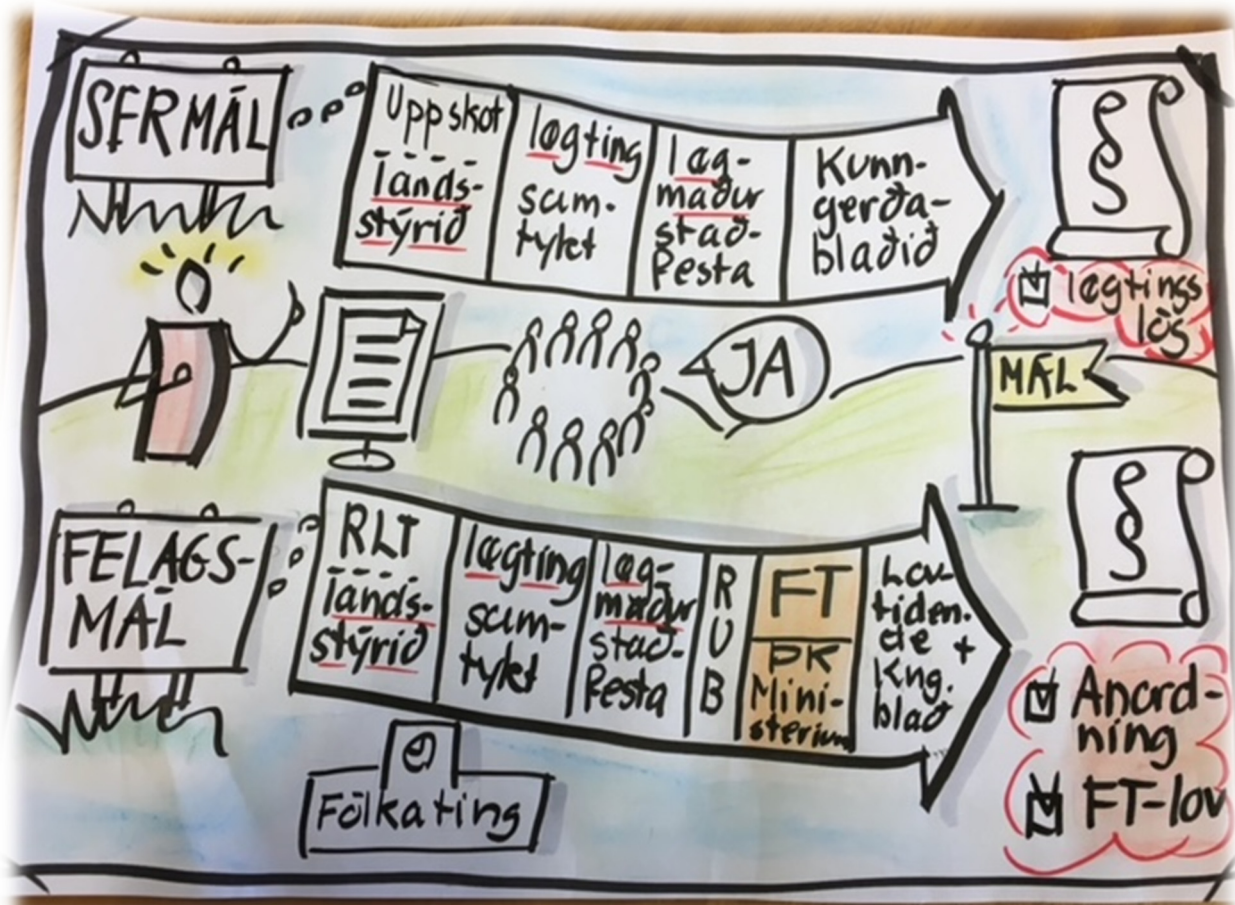 SERMÁL
Uppskot
lands-
stýrið
løgting
sam-
tykt
løg-
maður
stað-
festa
Kunn-
gerða-
blaðið
§
løgtings
lóg
JA
MÁL
FELAGS-
MÁL
RLT
lands-
stýrið
løgting
sam-
tykt
løg-
maður
stað-
festa
R
U
B
FT
DK
Mini-
sterium
Lov-
tiden-
de +
Kng.
blað
§
Anord-
ning
FT-lov
Fólkating